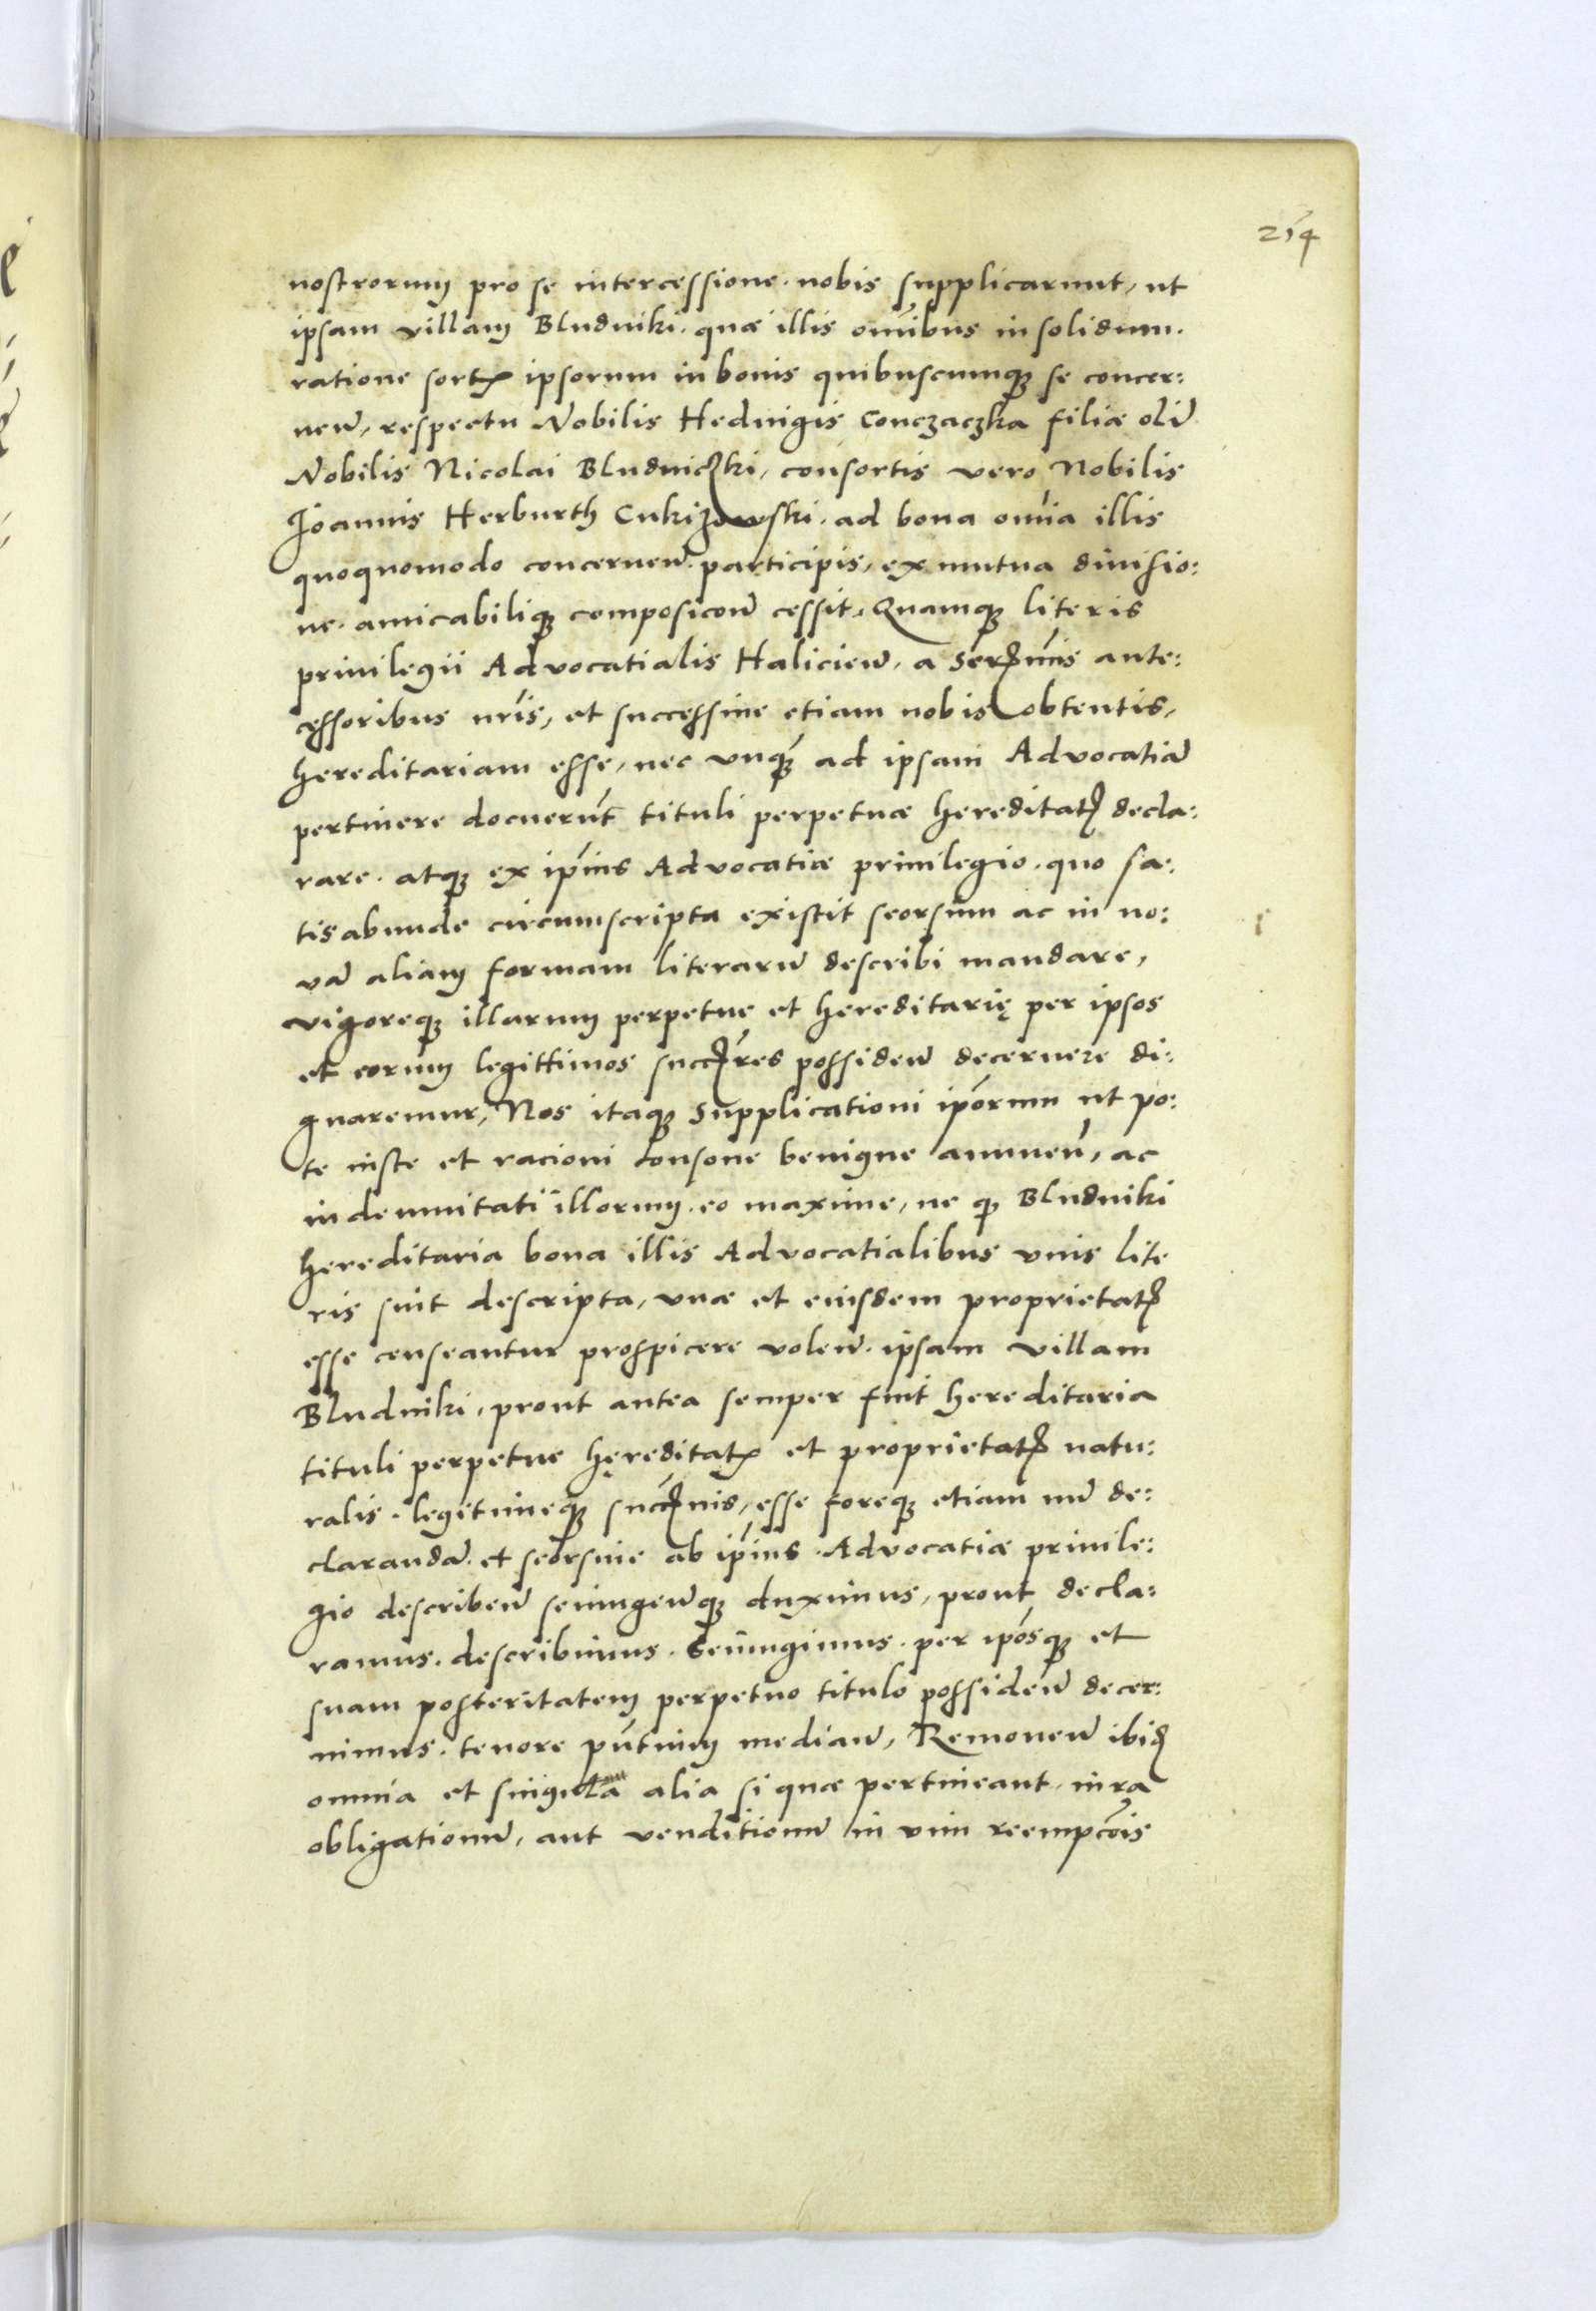 214
nostrorum pro se intercessione. nobis supplicarunt, ut
ipsam villam Bludniki. quæ illis om̃ibus in solidum.
ratione sortꝭ ipsorum in bonis quibuscumqꝫ se concer:
neñ, respectu Nobilis Heduigis Conczaczka filiæ oliɱ̃
Nobilis Nicolai Bludniczki, consortis vero Nobilis
Joannis Herburth Cukizowski. ad bona om̃ia illis
quoquomodo concerneñ. participis, ex mutua diuisio:
ne. amicabiliqꝫ composicoñe cessit, Quamqꝫ literis
priuilegii Aduocatialis Halicieñ, a Serꝫmis ante:
cessoribus nr̃is, et successiue etiam nobis obtentis,
hereditariam esse, nec vnqꝫ̃ ad ipsam Aduocatiã
pertinere docuerũt tituli perpetuæ hereditatꝭ decla:
rare. atqꝫ ex ip̃ius Aduocatiæ priuilegio. quo sa:
tis abunde circumscripta existit seorsum ac in no:
vã aliam formam literarũ describi mandare,
vigoreqꝫ illarum perpetue et hereditarię per ipsos
et eorum legittimos succꝫr̃es possideñ decernere di:
gnaremur, Nos itaqꝫ Supplicationi ip̃orum ut po:
te iuste et racioni consone benigne annueñ, ac
indemnitati illorum. eo maxime, ne qꝫ Bludniki
hereditaria bona illis Aduocatialibus vnis lite
ris sint descripta, vnæ et eiusdem proprietatꝭ
esse censeantur prospicere voleñ. ipsam villam
Bludniki, prout antea semper fuit hereditaria
tituli perpetue hęreditatꝭ et proprietatꝭ natu:
ralis. legitimeqꝫ succꝫnis, esse foreqꝫ etiam nũc de:
clarandã. et seorsiue ab ip̃ius. Aduocatiæ priuile:
gio describeñ seiungeñqꝫ duximus, prout decla:
ramus. describimus. Seiungimus. per ip̃osqꝫ et
suam posteritatem perpetuo titulo possideñ decer:
nimus. tenore pñtium mediañ, Remoueñ ibiꝫ
omnia et singula alia si quæ pertineant. iura
obligationũ, aut venditionũ in vim reempc̃ois